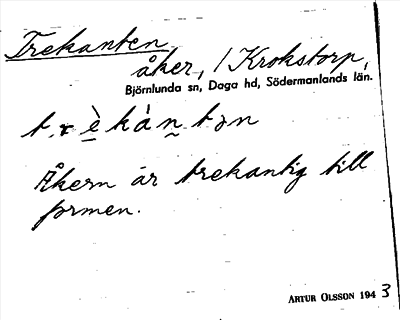 Trekanten
åker, / Krokstorp,
Björnlunda sn, Daga hd, Södermanlands län.
t.rèkàntən
Åkern är trekantig till
formen.
ARTUR OLSSON 1943